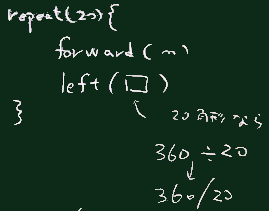 repeat(20){
forward(n)
left(□)
}
20角形なら
360÷20
360/20